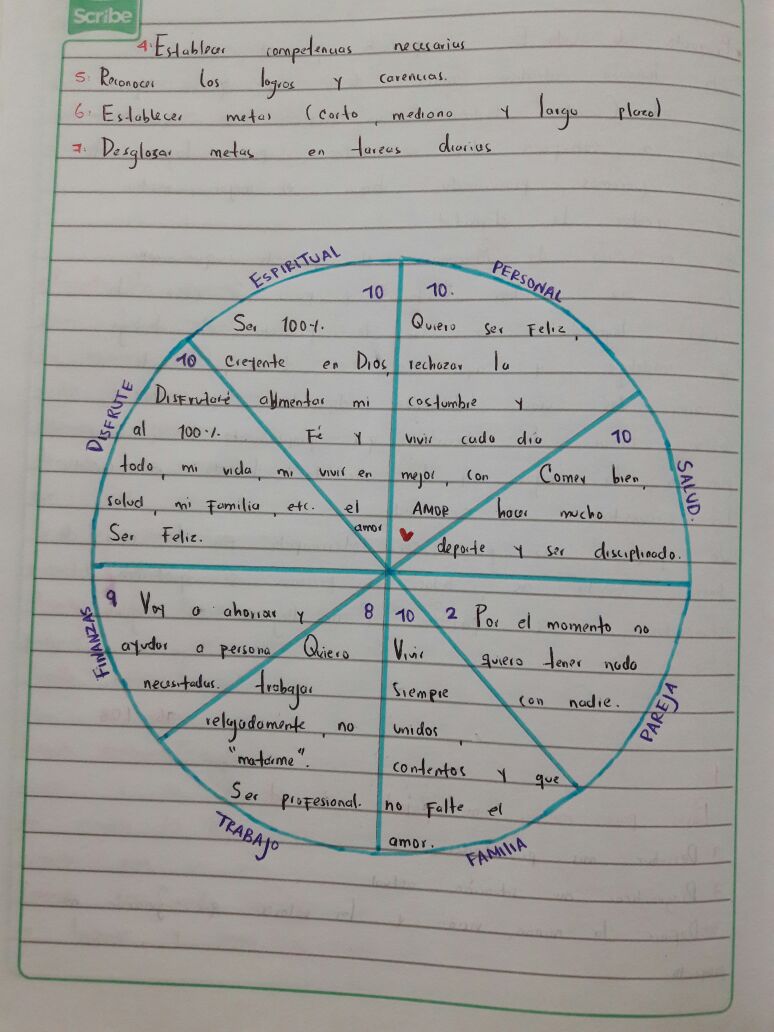 Scribe
4. Establecer competencias necesarias
5. Reconocer los logros y carencias.
6. Establecer metas (corto, mediano y largo plazo)
7. Desglosar metas en tareas diarias
ESPIRITUAL
10
Ser 100%
creyente en Dios,
alimentar mi
Fé y
vivir en
el
amor
PERSONAL
10.
Quiero ser Feliz,
rechazar la
costumbre y
vivir cada día
mejor, con
AMOR
SALUD.
10
Comer bien,
hacer mucho
deporte y ser disciplinado.
PAREJA
2 Por el momento no
quiero tener nada
con nadie.
FAMILIA
10
Vivir
siempre
unidos,
contentos y que
no falte el
amor.
TRABAJO
8
Quiero
trabajar
relajadamente, no
"matarme".
Ser profesional.
FINANZAS
9 Voy a ahorrar y
ayudar a persona
necesitadas.
DISFRUTE
10
Disfrutaré
al 100%
todo, mi vida, mi
salud, mi Familia, etc.
Ser Feliz.